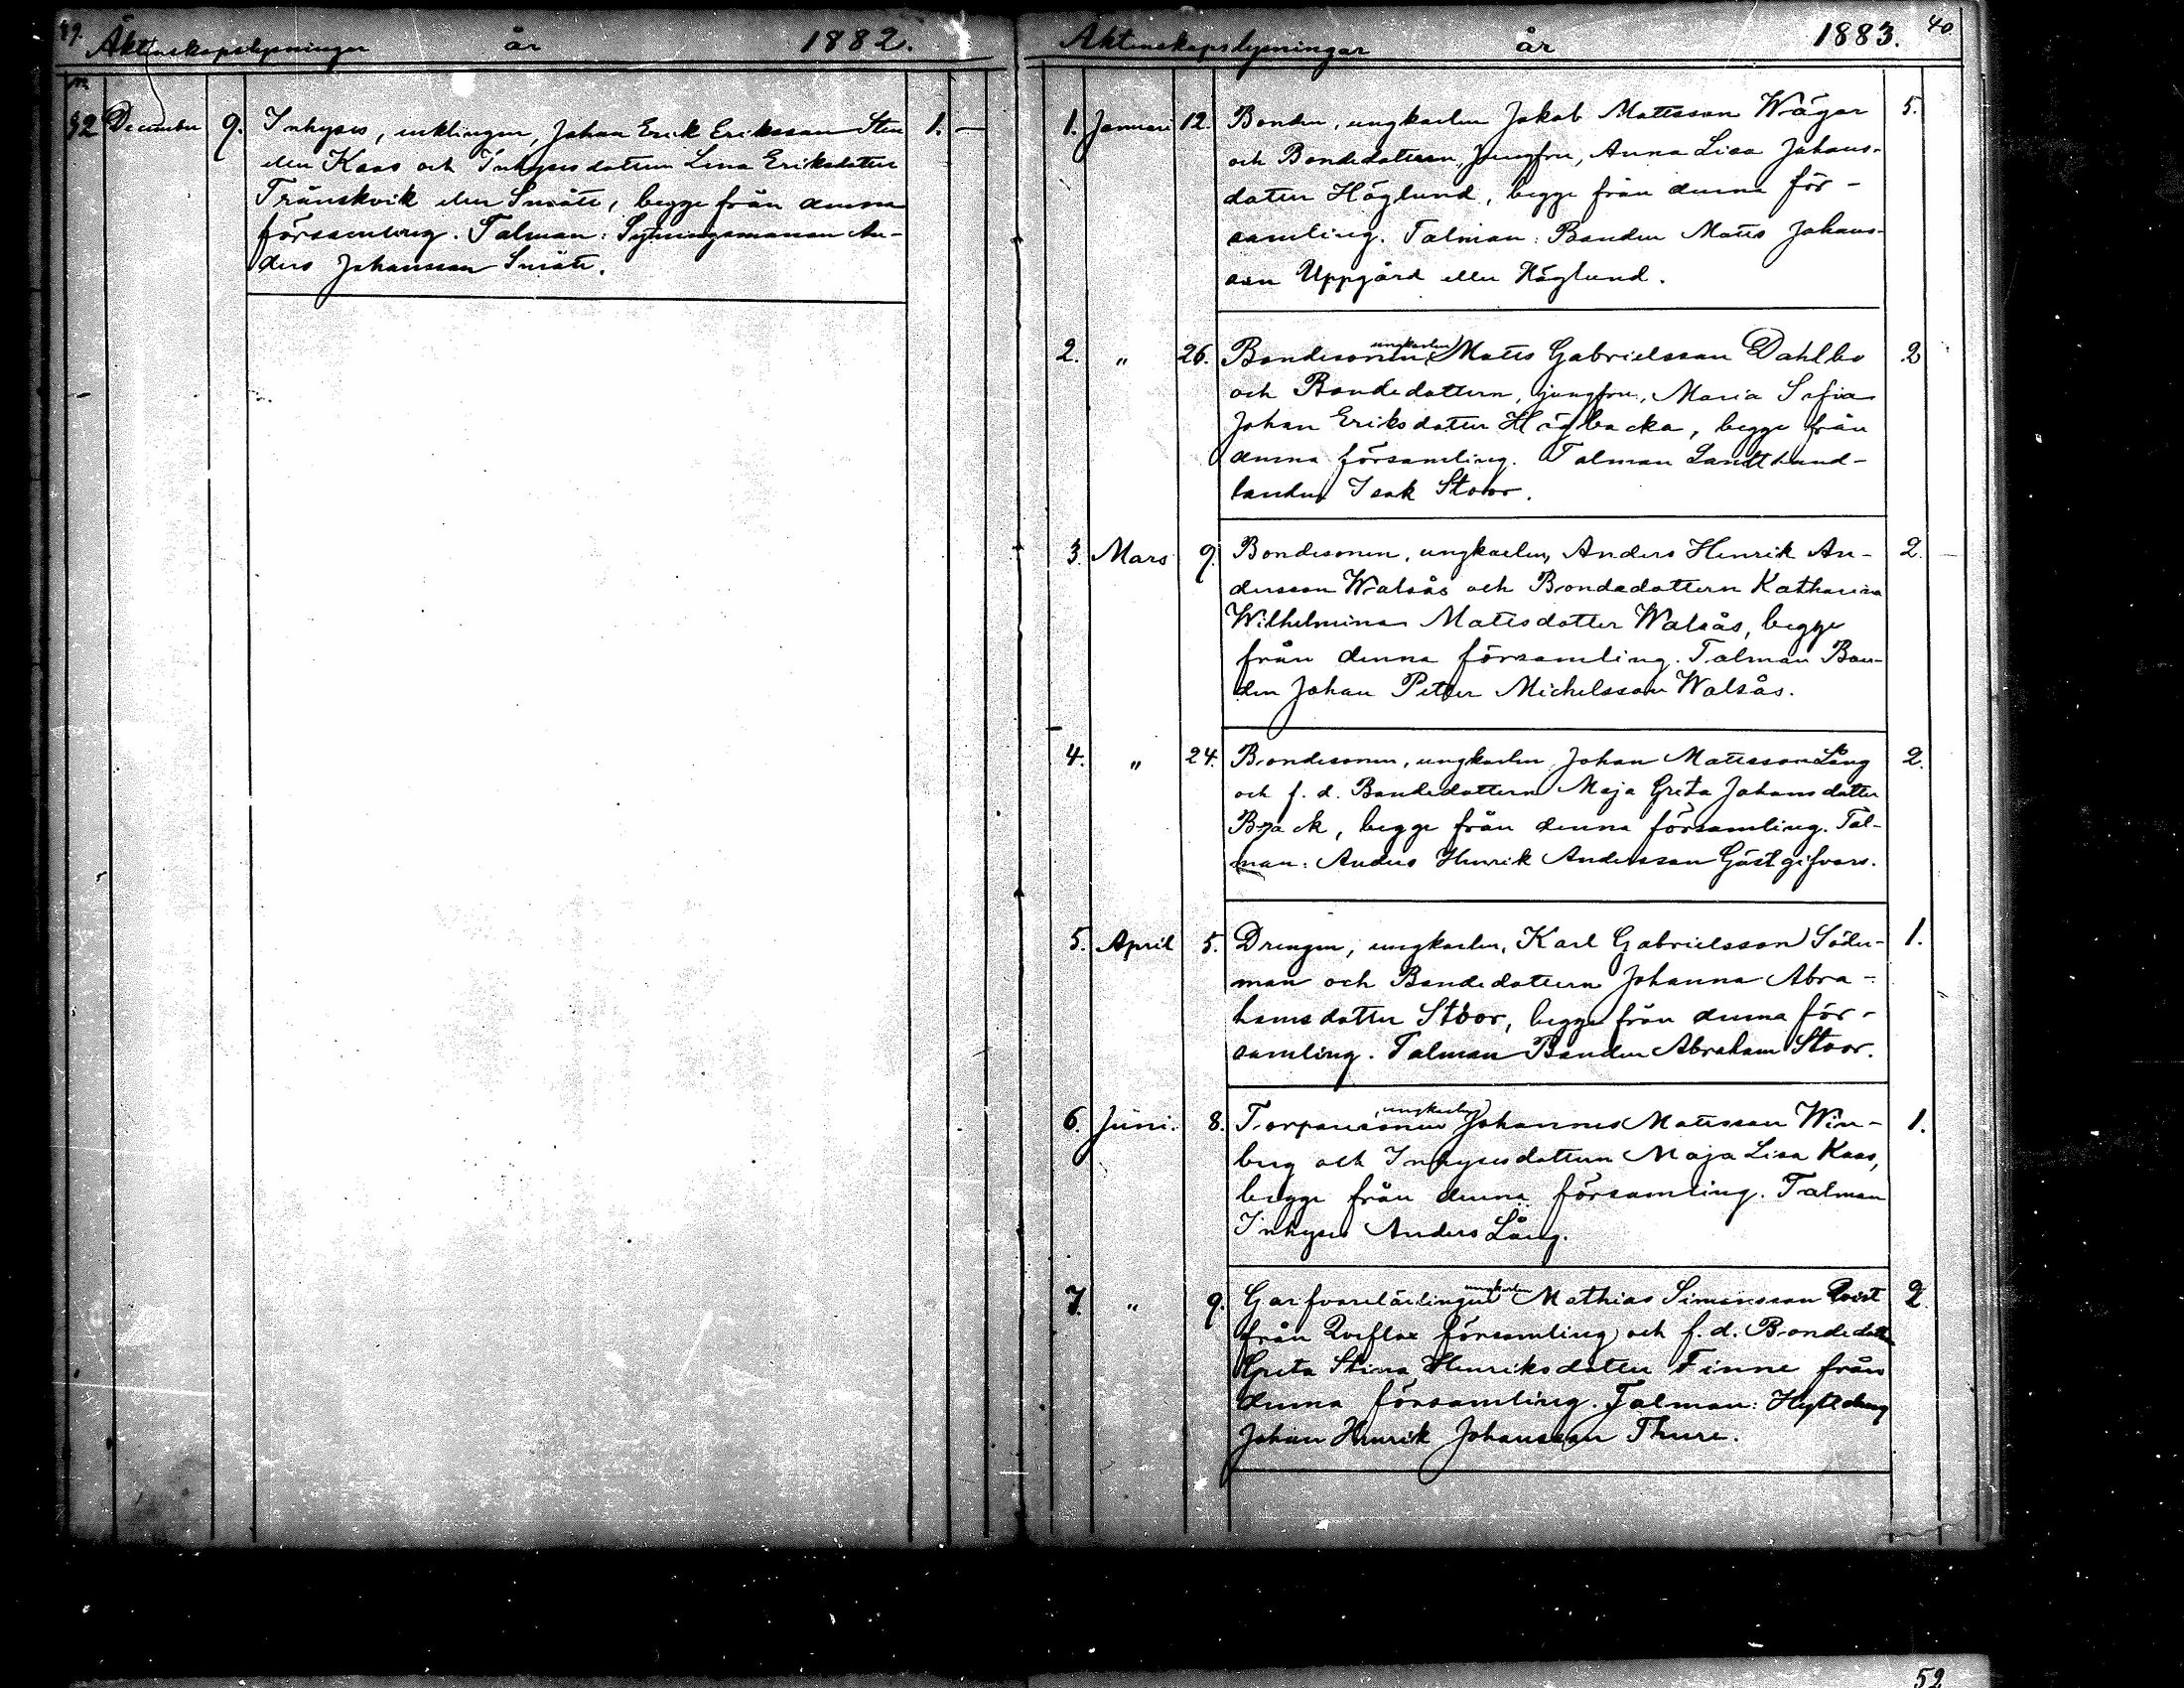 39.
Äktenskapslysningar år 1882.
N:
32 December 9. Inhyses, enklingen, Johan Erik Eriksson Sten 1. —
eller Kaas och Inhysesdottern Lena Eriksdotter
Tränskvik eller Smäts, begge från denna
församling. Talman: Sytningsmannen An-
ders Johansson Smäts.
Äktenskapslysningar år 1883. 40
1. Januari 12. Bonden, ungkarlen Jakob Mattsson Wägar 5.
och Bondedottern, Jungfru, Anna Lisa Johans-
dotter Höglund, begge från denna för-
samling. Talman: Bonden Matts Johans-
son Uppgård eller Höglund.
2. " 26. Bondesonen, ungkarlen Matts Gabrielsson Dahlbo 2
och Bondedottern, jungfru, Maria Sofia
Johan Eriksdotter Högbacka, begge från
denna församling. Talman Landthand-
landen Isak Stoor.
3. Mars 9. Bondesonen, ungkarlen, Anders Henrik An- 2.
dersson Walsås och Bondedottern Katharina
Wilhelmina Mattsdotter Walsås, begge
från denna församling. Talman Bon-
den Johan Petter Michelsson Walsås.
4. " 24. Bondesonen, ungkarlen Johan Mattsson Lång 2.
och f. d. Bondedottern Maja Greta Johansdotter
Back, begge från denna församling. Tal-
man: Anders Henrik Andersson Gästgifvars.
5. April 5. Drengen, ungkarlen, Karl Gabrielsson Söder- 1.
man och Bondedottern Johanna Abra-
hamsdotter Stoor, begge från denna för-
samling. Talman Bonden Abraham Stoor.
6. Juni. 8. Torparesonen, ungkarlen Johannes Mattsson Win- 1.
berg och Inhysesdottern Maja Lisa Kaas,
begge från denna församling. Talman
Inhyses Anders Lång.
7. " 9. Garfvarelärlingen ungkarlen Mathias Simonsson Qvist 2
från Qveflax församling och f. d. Bondedott
Greta Stina Henriksdotter Finne från
denna församling. Talman:
Johan Henrik Johansson Thure.
52